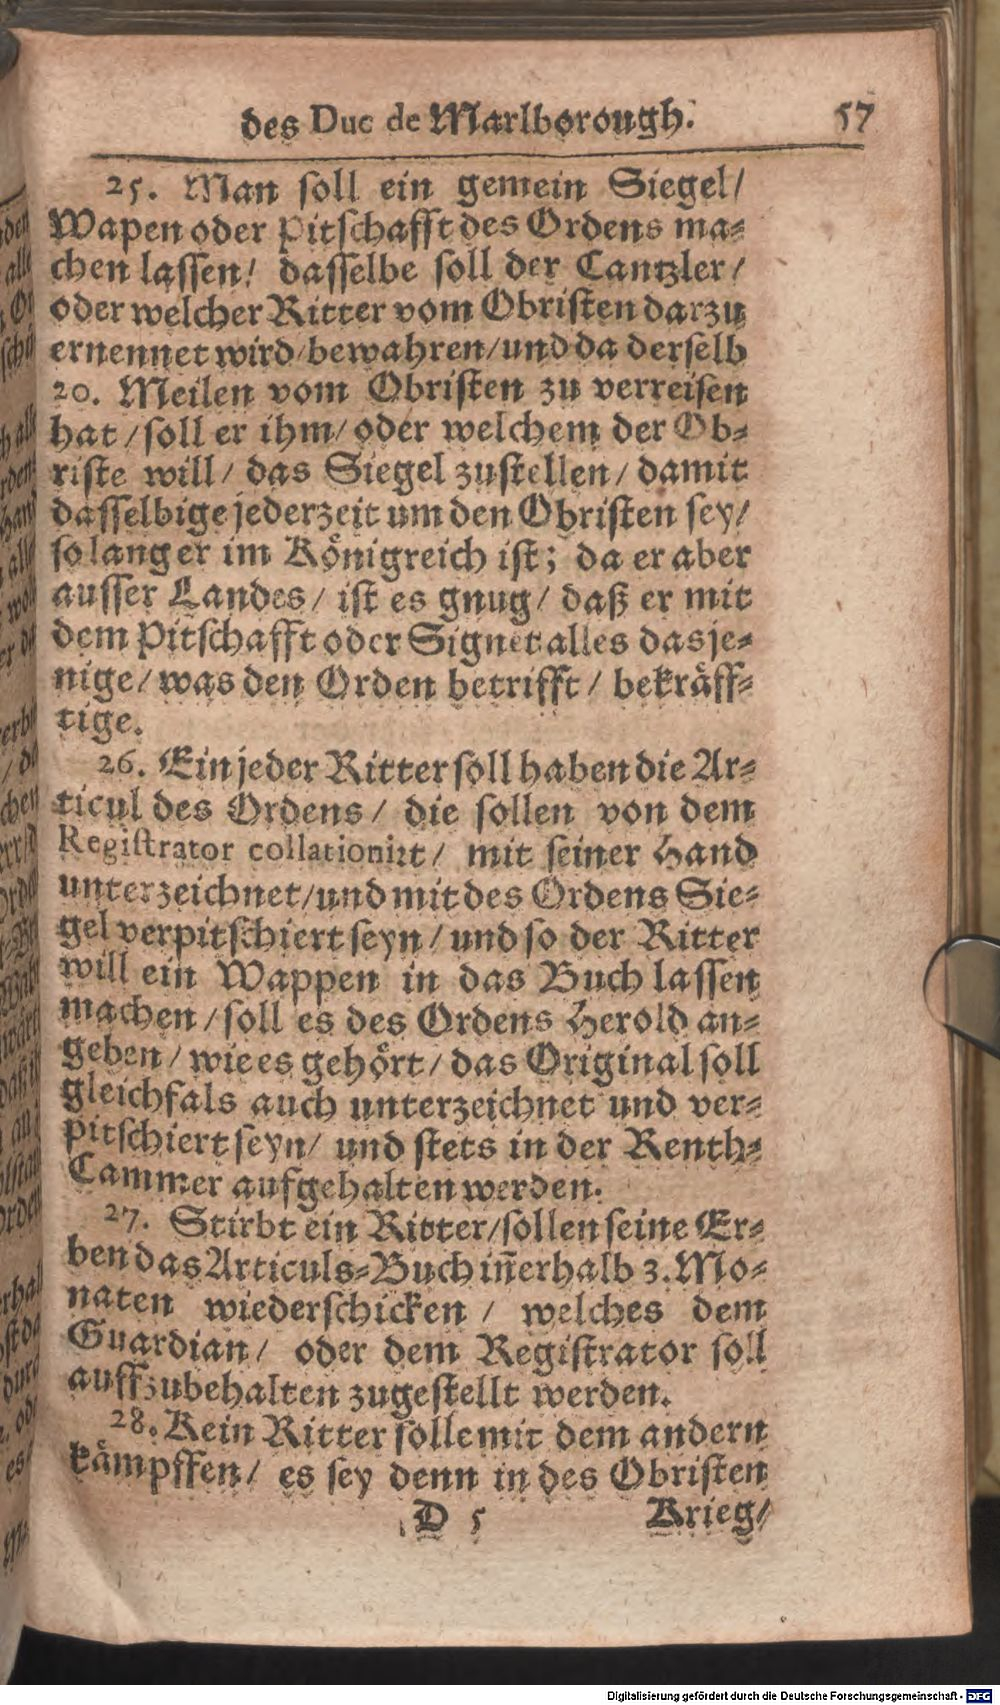 des Duc de Marlborough. 57
25. Man soll ein gemein Siegel/
Wapen oder Pitschafft des Ordens ma-
chen lassen/ dasselbe soll der Cantzler/
oder welcher Ritter vom Obristen darzu
ernennet wird/bewahren/und da derselb
20. Meilen vom Obristen zu verreisen
hat/soll er ihm/oder welchem der Ob-
riste will/ das Siegel zustellen/ damit
dasselbige jederzeit um den Obristen sey/
so lang er im Königreich ist; da er aber
ausser Landes/ ist es gnug/ daß er mit
dem Pitschafft oder Signet alles dasje-
nige/was den Orden betrifft/ bekräff-
tige.
26. Ein jeder Ritter soll haben die Ar-
ticul des Ordens/ die sollen von dem
Registrator collationirt/ mit seiner Hand
unterzeichnet/und mit des Ordens Sie-
gel verpitschiert seyn/und so der Ritter
will ein Wappen in das Buch lassen
machen/soll es des Ordens Herold an-
geben/wie es gehört/das Original soll
gleichfals auch unterzeichnet und ver-
pitschiert seyn/ und stets in der Renth-
Cammer aufgehalten werden.
27. Stirbt ein Ritter/sollen seine Er-
ben das Articuls-Buch iñerhalb 3. Mo-
naten wiederschicken/ welches dem
Guardian/ oder dem Registrator soll
auffzubehalten zugestellt werden.
28. Kein Ritter solle mit dem andern
kämpffen/ es sey denn in des Obristen
D 5 Krieg/
Digitalisierung gefördert durch die Deutsche Forschungsgemeinschaft - DFG